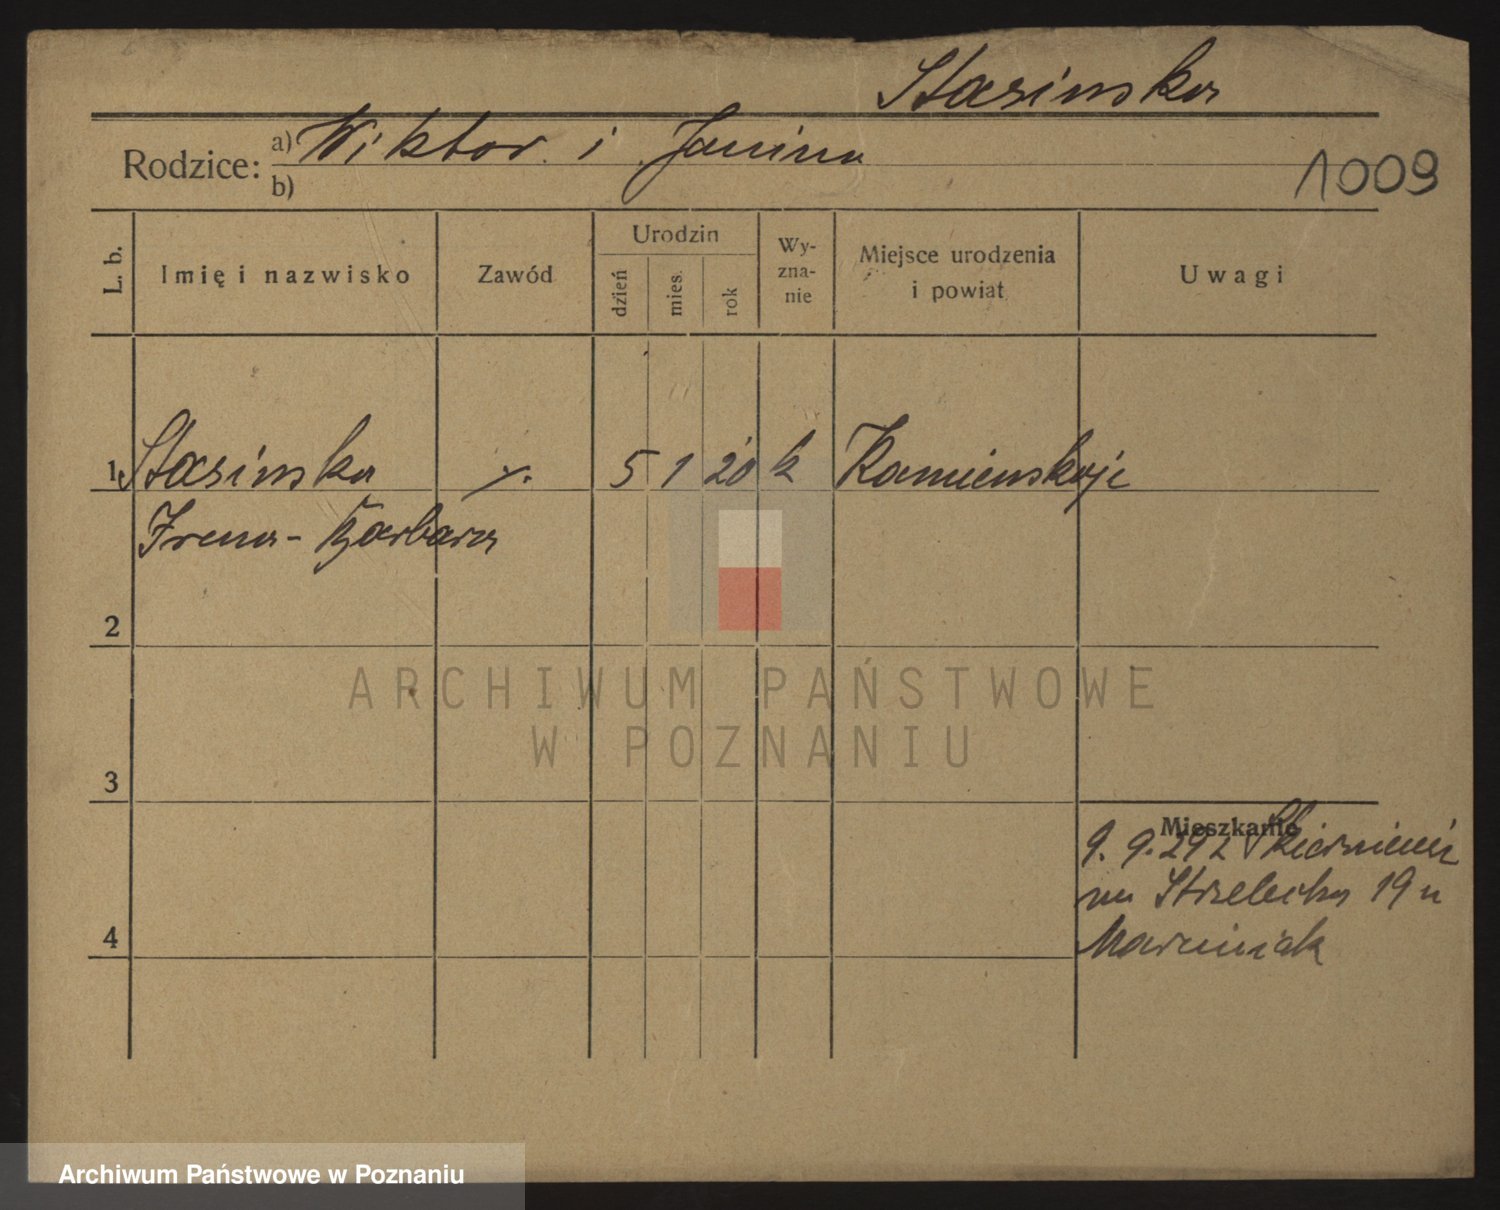 Stasinska
Rodzice: a) Wiktor i Janina
b)
1009
L. b. Imię i nazwisko Zawód Urodzin dzień mies. rok Wy-zna-nie Miejsce urodzenia i powiat Uwagi
1 Stasinska 5 1 20 k Kamienskoje
Irena - Barbara
2
ARCHIWUM PAŃSTWOWE
W POZNANIU
3
Mieszkanie
9. 9. 29 z Skierniewic
na Strzelecka 19 u
Marciniak
4
Archiwum Państwowe w Poznaniu